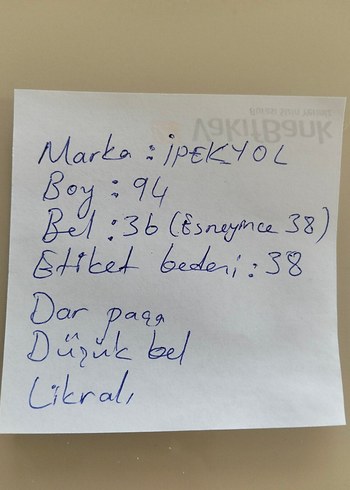 VakıfBank
Marka : İPEKYOL
Boy : 94
Bel : 36 (Esneyince 38)
Etiket bedeni : 38
Dar paça
Düşük bel
Likralı